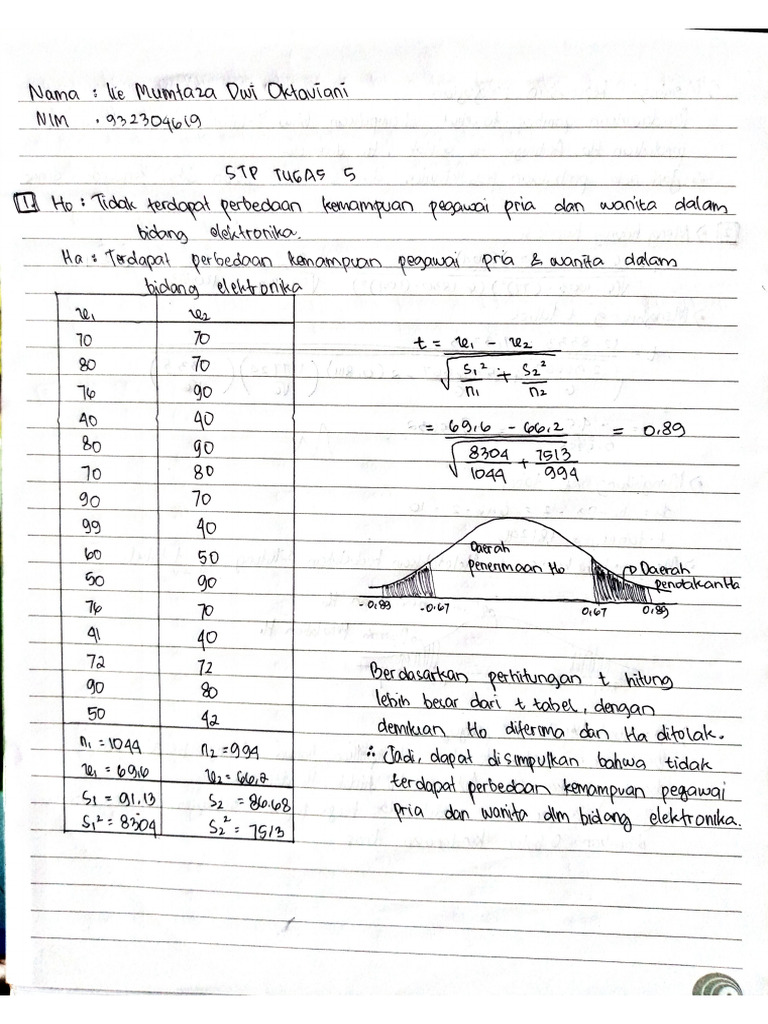 Nama : Ike Mumtaza Dwi Oktaviani
NIM : 932304619
STP TUGAS 5
1. Ho : Tidak terdapat perbedaan kemampuan pegawai pria dan wanita dalam
bidang elektronika.
Ha : Terdapat perbedaan kemampuan pegawai pria & wanita dalam
bidang elektronika
x₁ x₂
70 70
80 70
76 90
40 40
80 90
70 80
90 70
99 40
60 50
50 90
76 70
41 40
72 72
90 80
50 42
n₁ = 1044 n₂ = 994
x₁ = 69,6 x₂ = 66,2
S₁ = 91.13 S₂ = 86.68
S₁² = 8304 S₂² = 7513
t = x₁ - x₂ / √(S₁²/n₁ + S₂²/n₂)
= 69,6 - 66,2 / √(8304/1044 + 7513/994) = 0,89
Daerah
penerimaan Ho
Daerah
penolakan Ha
-0,89 -0,67 0,67 0,89
Berdasarkan perhitungan t hitung
lebih besar dari t tabel, dengan
demikian Ho diterima dan Ha ditolak.
∴ Jadi, dapat disimpulkan bahwa tidak
terdapat perbedaan kemampuan pegawai
pria dan wanita dlm bidang elektronika.